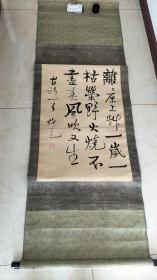 離原上艸一歲一
枯榮野火燒不
盡春風吹又生
古詩一首